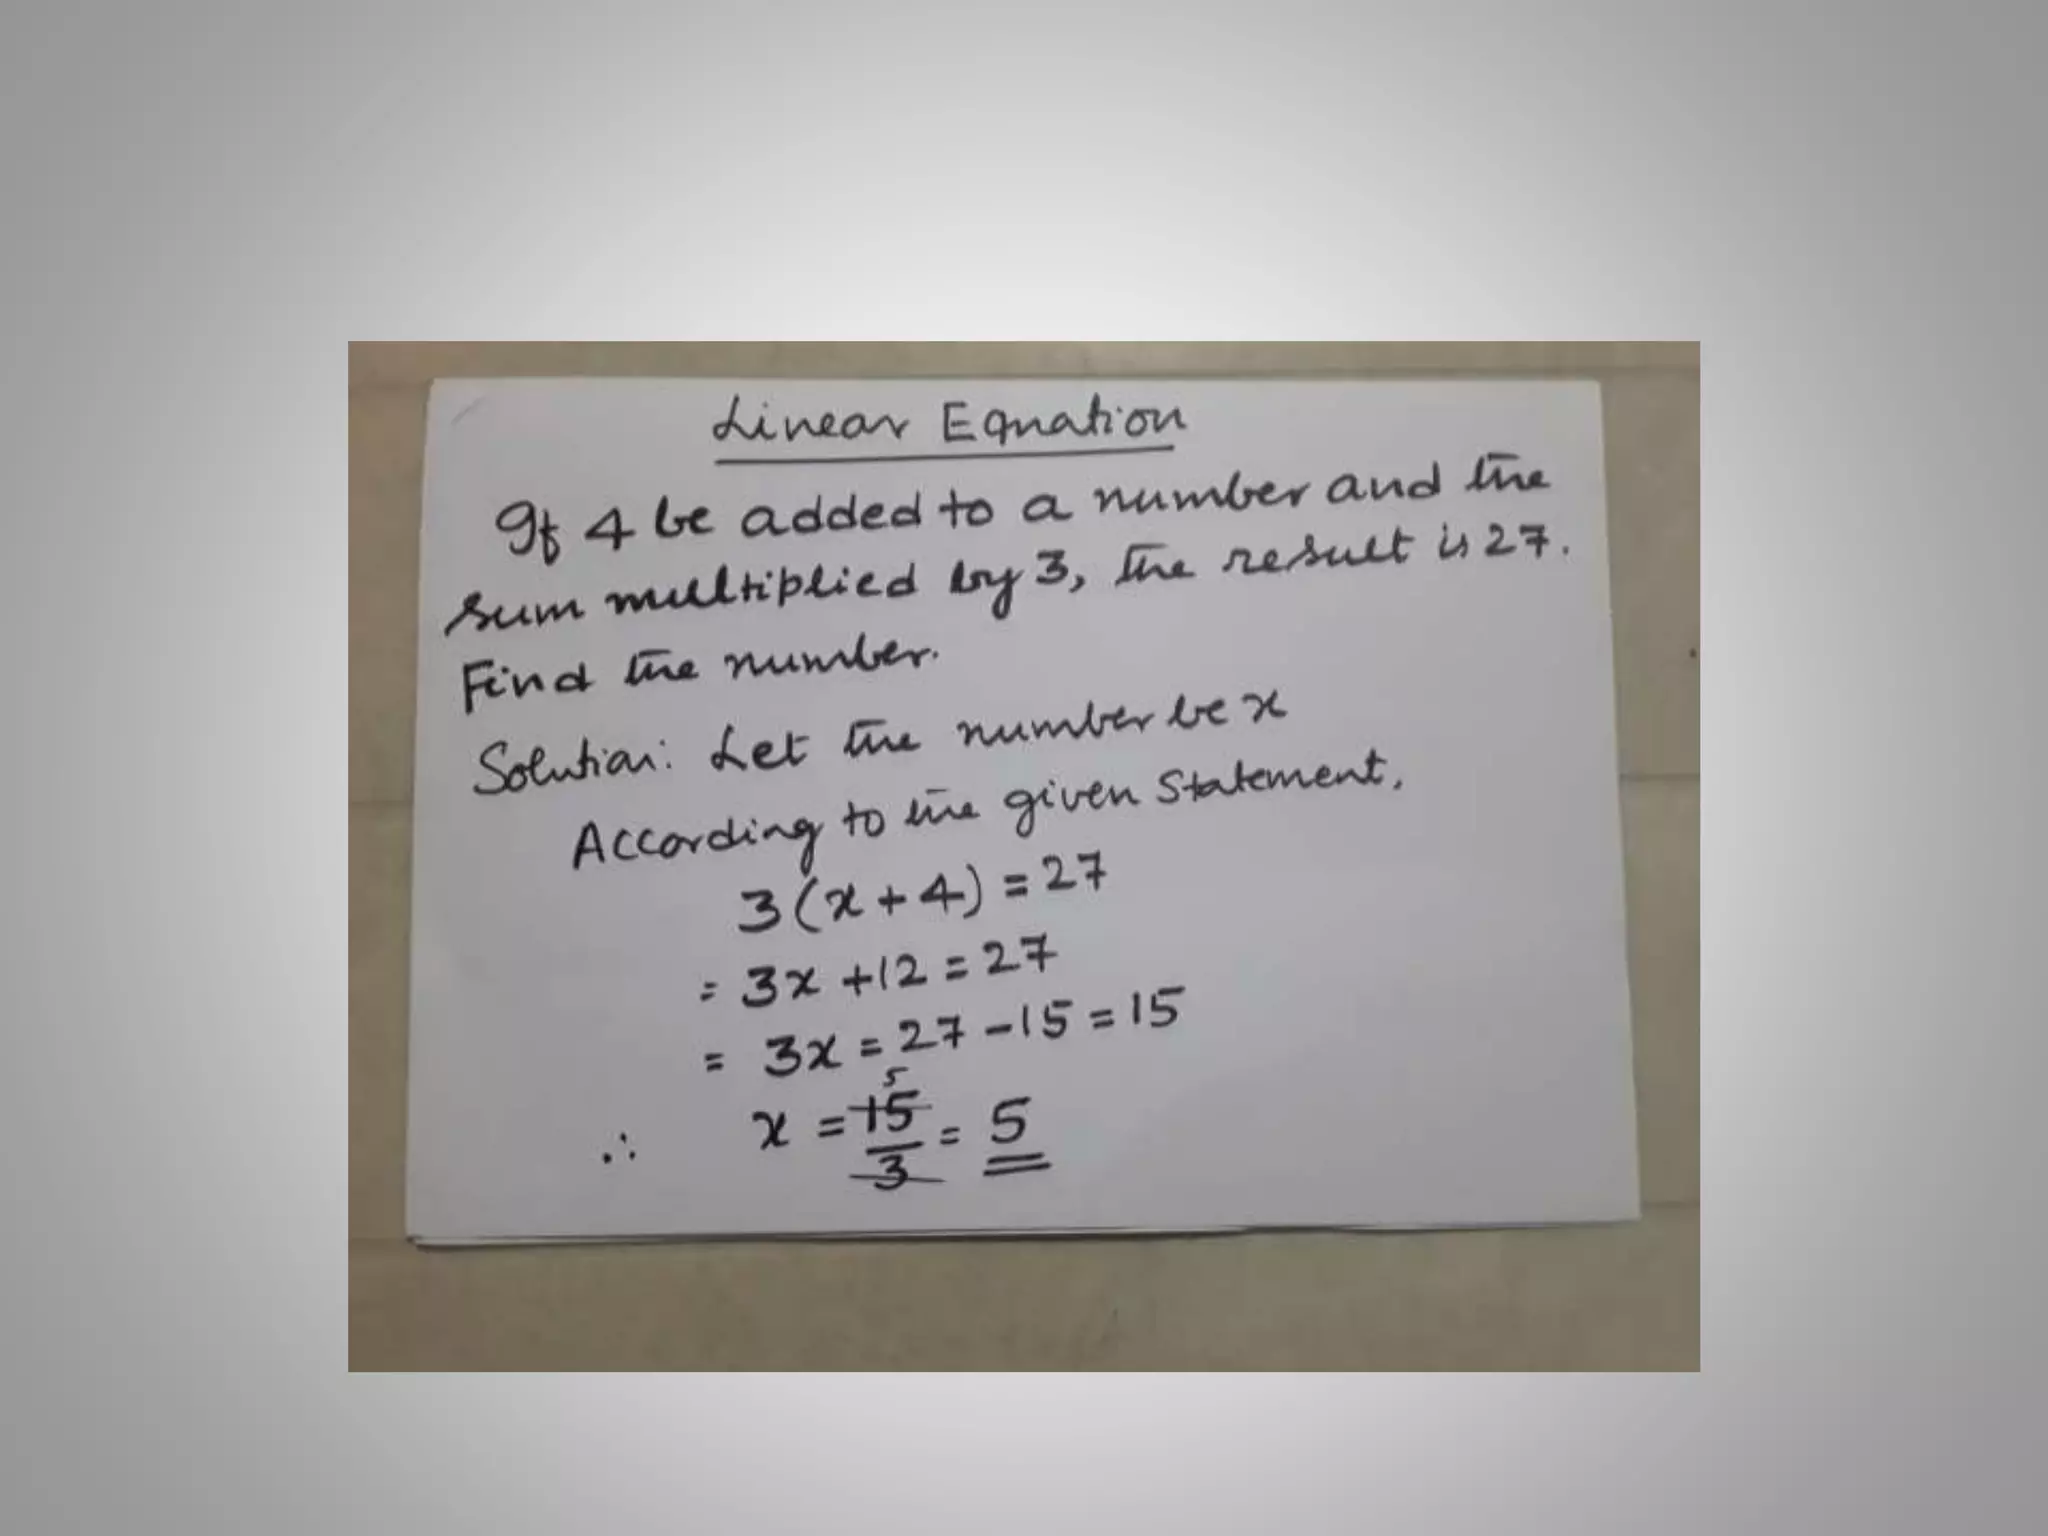 Linear Equation
If 4 be added to a number and the
sum multiplied by 3, the result is 27.
Find the number.
Solution: Let the number be x
According to the given statement,
3(x+4) = 27
= 3x +12 = 27
= 3x = 27 - 15 = 15
∴ x = 15/3 = 5
5